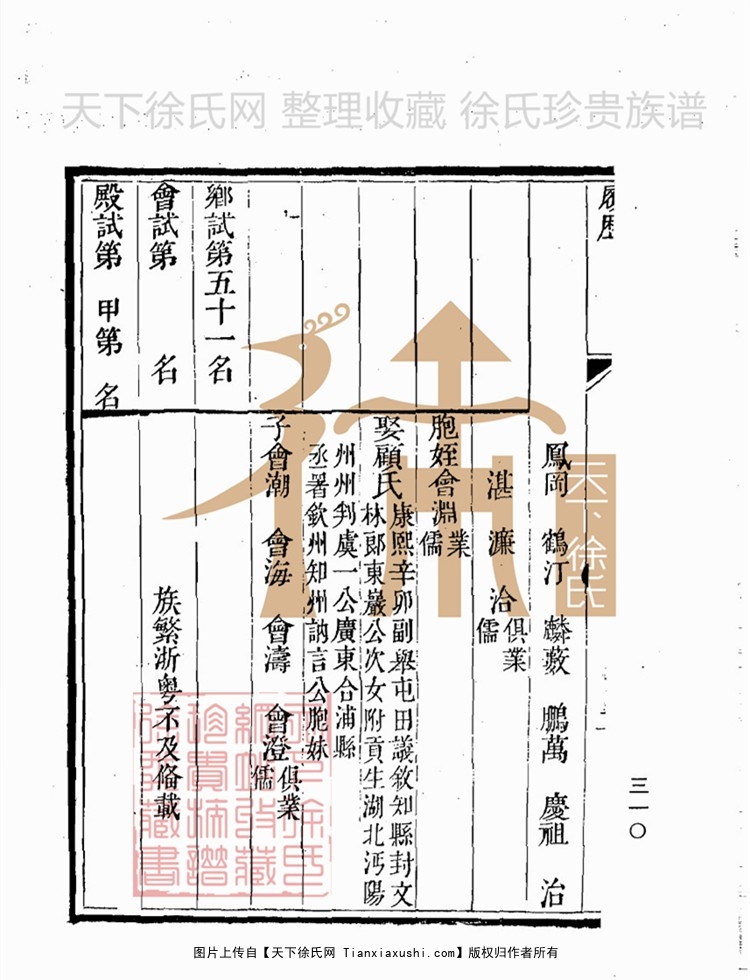 天下徐氏网 整理收藏 徐氏珍贵族谱
履歷
鳳岡 鶴汀 麟薮 鵬萬 慶祖 治
湛 濂 洽 俱業儒
胞姪會淵 業儒
娶顧氏 康熙辛卯副舉屯田議敘知縣封文
林郎東巖公次女附貢生湖北沔陽
州州判虞一公廣東合浦縣
丞署欽州知州訥言公胞妹
子會潮 會海 會濤 會澄 俱業儒
族繁浙粵不及備載
鄉試第五十一名
會試第 名
殿試第 甲第 名
三一〇
天下徐氏
图片上传自【天下徐氏网 Tianxiaxushi.com】版权归作者所有